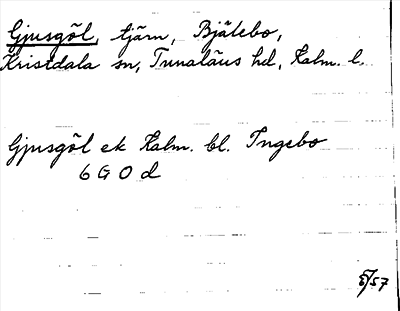 Gjusgöl, tjärn, Bjälebo,
Kristdala sn, Tunaläns hd, Kalm. l.
Gjusgöl ek Kalm. bl. Ingebo
6 G O d
57